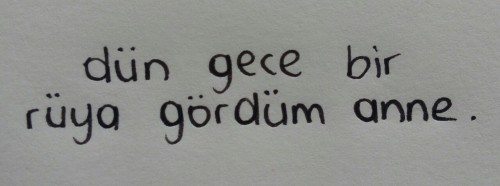 dün gece bir
rüya gördüm anne.